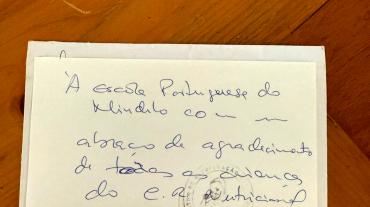 À escola Portuguesa do
Mindelo com um
abraço de agradecimento
de todas as crianças
do C.R. nutricional